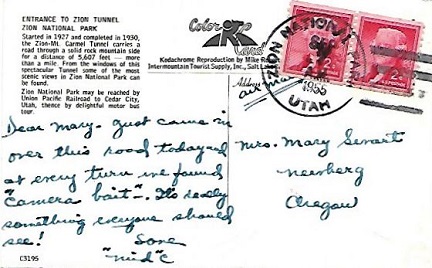 ENTRANCE TO ZION TUNNEL
ZION NATIONAL PARK
Started in 1927 and completed in 1930,
the Zion-Mt. Carmel Tunnel carries a
road through a solid rock mountain side
for a distance of 5,607 feet — more
than a mile. From the windows of this
spectacular Tunnel some of the most
scenic views in Zion National Park can
be found.
Zion National Park may be reached by
Union Pacific Railroad to Cedar City,
Utah, thence by delightful motor bus
tour.
Color Card
Kodachrome Reproduction by Mike Ro
Intermountain Tourist Supply, Inc., Salt La
Address
Air Ma
ZION NATIONAL PARK
1955
UTAH
2¢
2¢
Dear Mary- Just came in
over this road today and
at every turn we found
"camera bait". It's really
something everyone should
see!
Love
"Mid" C
Mrs. Mary
Newberg
Oregon
C3195